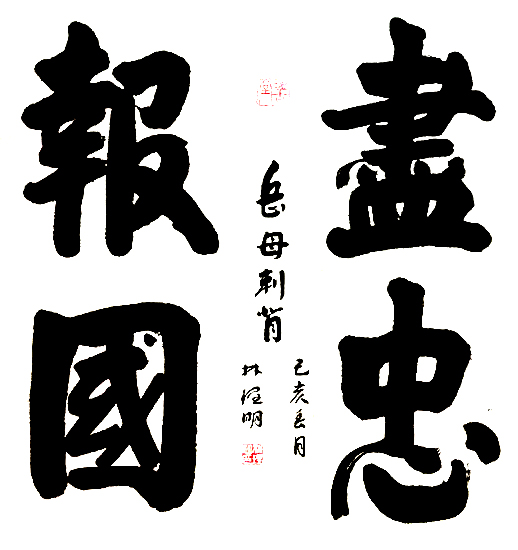 盡忠
報國
岳母刺背
己亥春月
林
明